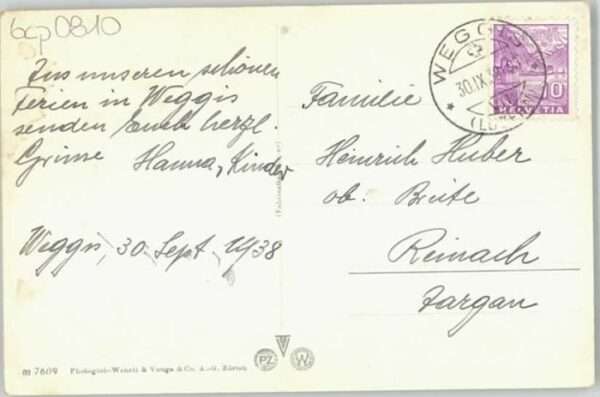 bcp0810
Aus unseren schönen
Ferien in Weggis
senden Euch herzl.
Grüsse Hanna, Kinder
Weggis, 30. Sept. 1938
WEGGIS
30.IX.
(LUZERN)
10
HELVETIA
Familie
Heinrich Huber
ob. Breite
Reinach
Aargau
m 7609 Photoglob-Wehrli & Vouga & Co. A.-G. Zürich
PZ
W